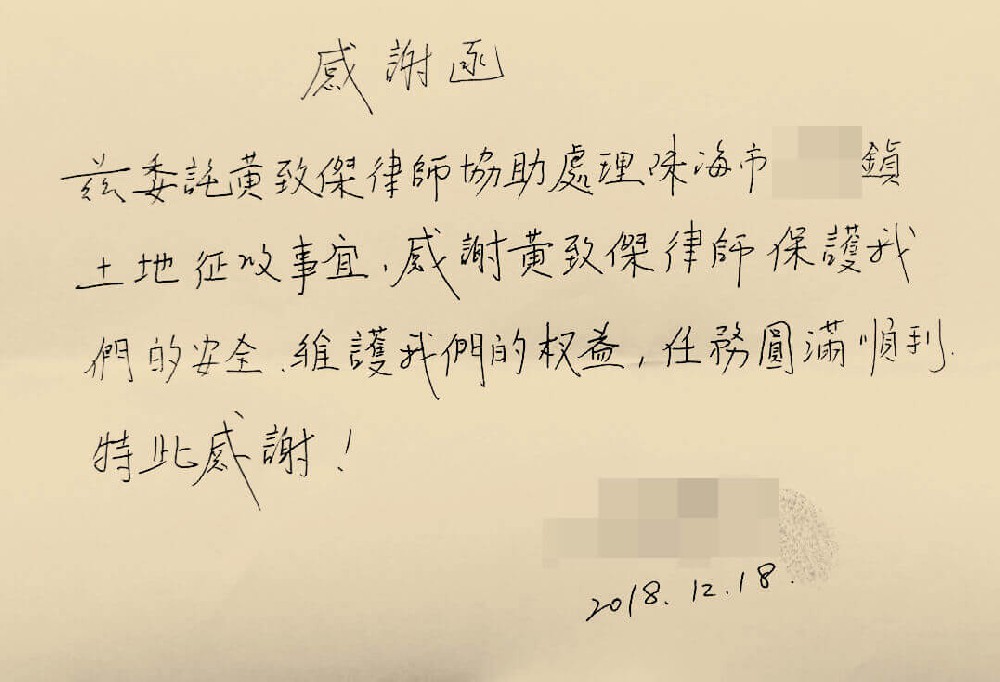 感謝函
茲委託黃致傑律師協助處理珠海市 鎮
土地征收事宜,感謝黃致傑律師保護我
們的安全、維護我們的权益,任務圓滿順利.
特此感謝!
2018.12.18.